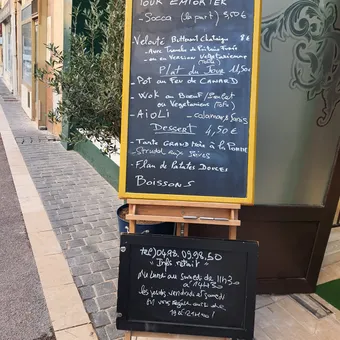 Pour Emporter
- Socca (la part) 3,50€
- Velouté Butternut Chataîgne 8€
- Avec Tranche de
ou en version végétarienne
(Tofu)
Plat du Jour 11,50
- Pot au Feu de CANARD
- Wok au Boeuf/Poulet
ou Végétarien (Tofu)
- Aïoli - calamars
Dessert 4,50€
- Tarte GRAND Mère à la Pomme
- Strudel aux Poires
- Flan de Patates Douces
Boissons
tel) 0498.09.98.50
du lundi au samedi de 11h30
à 14h30
les jeudi, vendredi et samedi